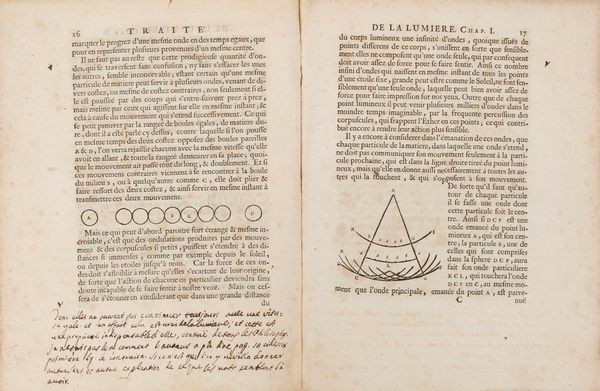 16 TRAITE
marquer le progrez d'une mesme onde en des temps egaux, que
pour en representer plusieurs provenues d'un mesme centre.
Il ne faut pas au reste que cette prodigieuse quantité d'on-
des, qui se traversent sans confusion, ny sans s'effacer les unes
les autres, semble inconcevable; estant certain qu'une mesme
particule de matiere peut servir à plusieurs ondes, venant de di-
vers costez, ou mesme de costez contraires, non seulement si el-
le est poussée par des coups qui s'entresuivent prez à prez,
mais mesme par ceux qui agissent sur elle en mesme instant; &
cela à cause du mouvement qui s'etend successivement. Ce qui
se peut prouver par la rangée de boules égales, de matiere du-
re, dont il a esté parlé cy dessus; contre laquelle si l'on pousse
en mesme temps des deux costez opposez des boules pareilles
A & D, l'on verra rejaillir chacune avec la mesme vitesse qu'elle
avoit en allant, & toute la rangée demeurer en sa place, quoi-
que le mouvement ait passé tout du long, & doublement. Et si
ces mouvements contraires viennent à se rencontrer à la boule
du milieu B, ou à quelqu'autre comme C, elle doit plier &
faire ressort des deux costez, & ainsi servir en mesme instant à
transmettre ces deux mouvemens.
A B C D
Mais ce qui peut d'abord paroitre fort étrange & mesme in-
croiable, c'est que des ondulations produites par des mouve-
mens & des corpuscules si petits, pussent s'étendre à des di-
stances si immenses, comme par exemple depuis le soleil,
ou depuis les étoiles jusqu'à nous. Car la force de ces on-
des doit s'affoiblir à mesure qu'elles s'ecartent de leur origine,
de sorte que l'action de chacune en particulier deviendra sans
doute incapable de se faire sentir à nostre veuë. Mais on ces-
sera de s'étonner en considerant que dans une grande distance
du
Donc elles ne peuvent pas continuer tousjours
DE LA LUMIERE. CHAP. I. 17
du corps lumineux une infinité d'ondes, quoique issuës de
points differens de ce corps, s'unissent en sorte que sensible-
ment elles ne composent qu'une onde seule, qui par consequent
doit avoir assez de force pour se faire sentir. Ainsi ce nombre
infini d'ondes qui naissent en mesme instant de tous les points
d'une étoile fixe, grande peut estre comme le Soleil, ne font sen-
siblement qu'une seule onde, laquelle peut bien avoir assez de
force pour faire impression sur nos yeux. Outre que de chaque
point lumineux il peut venir plusieurs milliers d'ondes dans le
moindre temps imaginable, par la frequente percussion des
corpuscules, qui frappent l'Ether en ces points; ce qui contri-
buë encore à rendre leur action plus sensible.
Il y a encore à considerer dans l'émanation de ces ondes, que
chaque particule de la matiere, dans laquelle une onde s'etend,
ne doit pas communiquer son mouvement seulement à la parti-
cule prochaine, qui est dans la ligne droite tirée du point lumi-
neux; mais qu'elle en donne aussi necessairement à toutes les au-
tres qui la touchent, & qui s'opposent à son mouvement.
De sorte qu'il faut qu'au-
tour de chaque particule
il se fasse une onde dont
cette particule soit le cen-
tre. Ainsi si DCF est une
onde emanée du point lu-
mineux A, qui est son cen-
tre; la particule B, une de
celles qui sont comprises
dans la sphere DCF, aura
fait son onde particuliere
KCL, qui touchera l'onde
DCF en C, au mesme mo-
ment que l'onde principale, emanée du point A, est parve-
C nuë